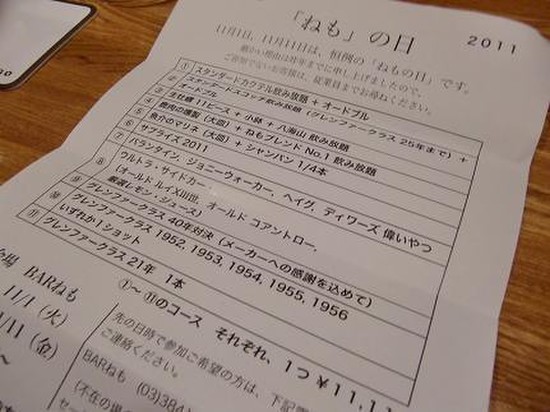 「ねも」の日
2011
11月1日、11月11日は、恒例の「ねもの日」です。
細かい理由は昨年までに申し上げましたので、
ご存知でないお客様は、従業員までお尋ねください。
① スタンダードカクテル飲み放題 + オードブル
② スタンダードスコッチ飲み放題 (グレンファークラス 25年まで) +
オードブル
③ 生牡蠣 11ピース + 小鉢 + 八海山 飲み放題
④ 鹿肉の燻製 (大皿) + ねもブレンド No.1 飲み放題
⑤ 魚介のマリネ (大皿) + シャンパン 1/4本
⑥ サプライズ 2011
⑦ バランタイン、ジョニーウォーカー、ヘイグ、ディワーズ 偉いやつ
⑧ ウルトラ・サイドカー
(オールド ルイXIII世、オールド コアントロー、
厳選レモン・ジュース)
⑨ グレンファークラス 40年対決 (メーカーへの感謝を込めて)
⑩ グレンファークラス 1952, 1953, 1954, 1955, 1956
いずれか1ショット
⑪ グレンファークラス 21年 1本
①～⑪のコース それぞれ、1つ ¥11,11
会場 BARねも
11/1 (火)
1/11 (金)
先の日時で参加ご希望の方は、下記
ご連絡ください。
BARねも (03)384
(不在の場